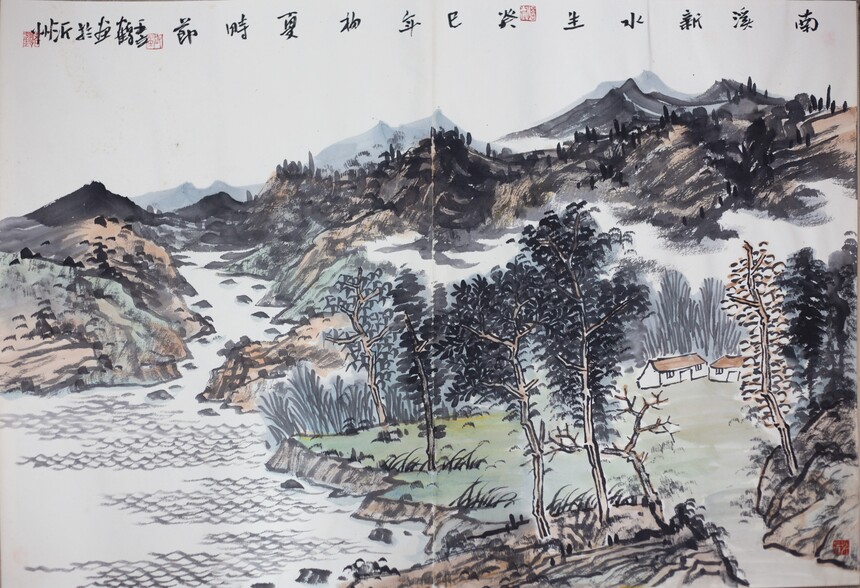 南溪新水生癸巳年初夏時節云鶴画於沂州